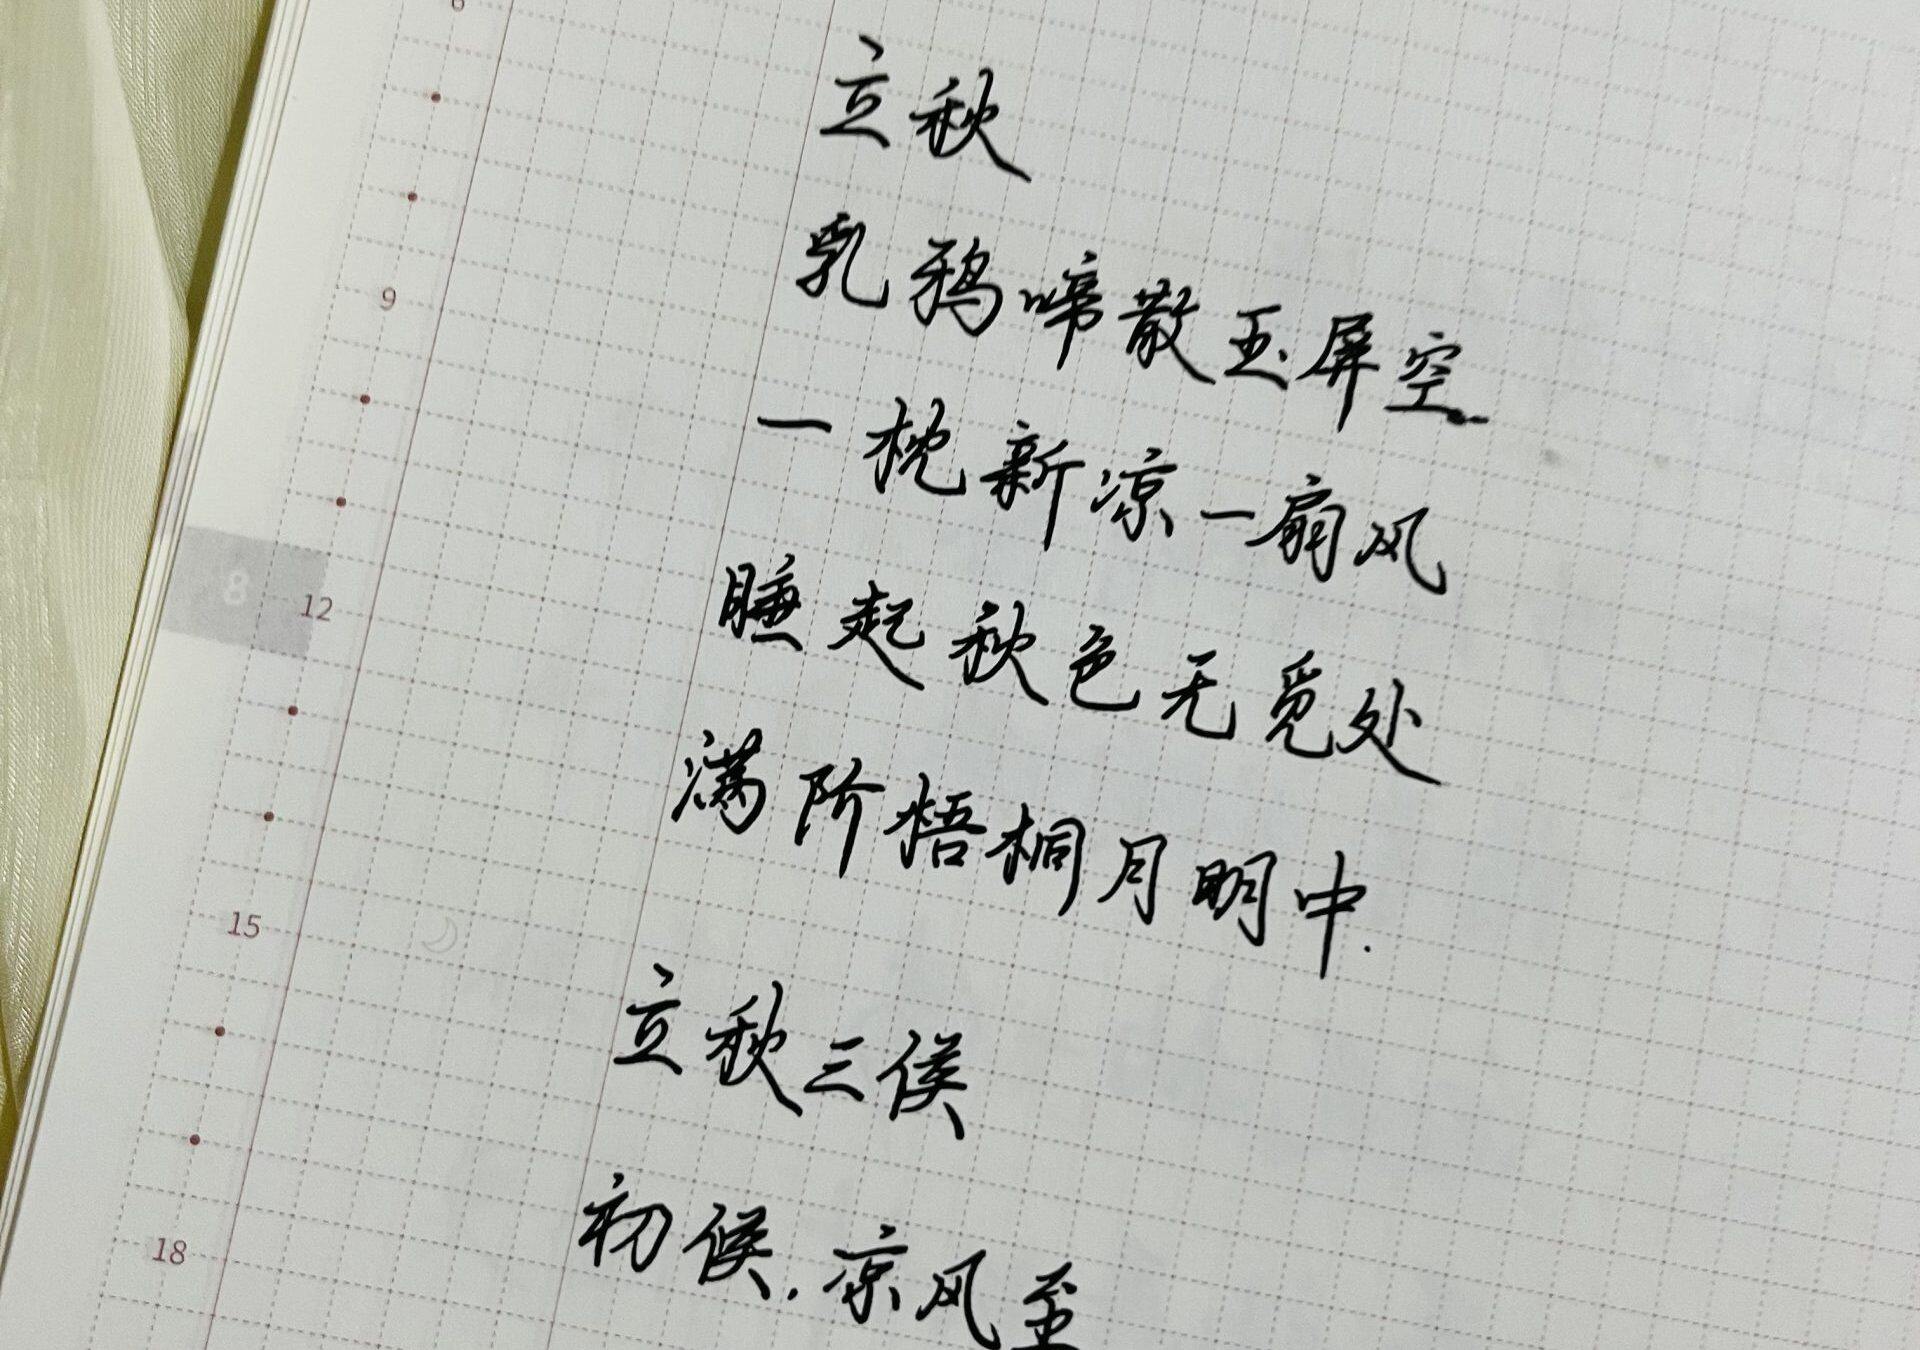 6
立秋
乳鸦啼散玉屏空
9
一枕新凉一扇风
睡起秋色无觅处
8
12
满阶梧桐月明中.
15
立秋三候
初候.凉风至
18